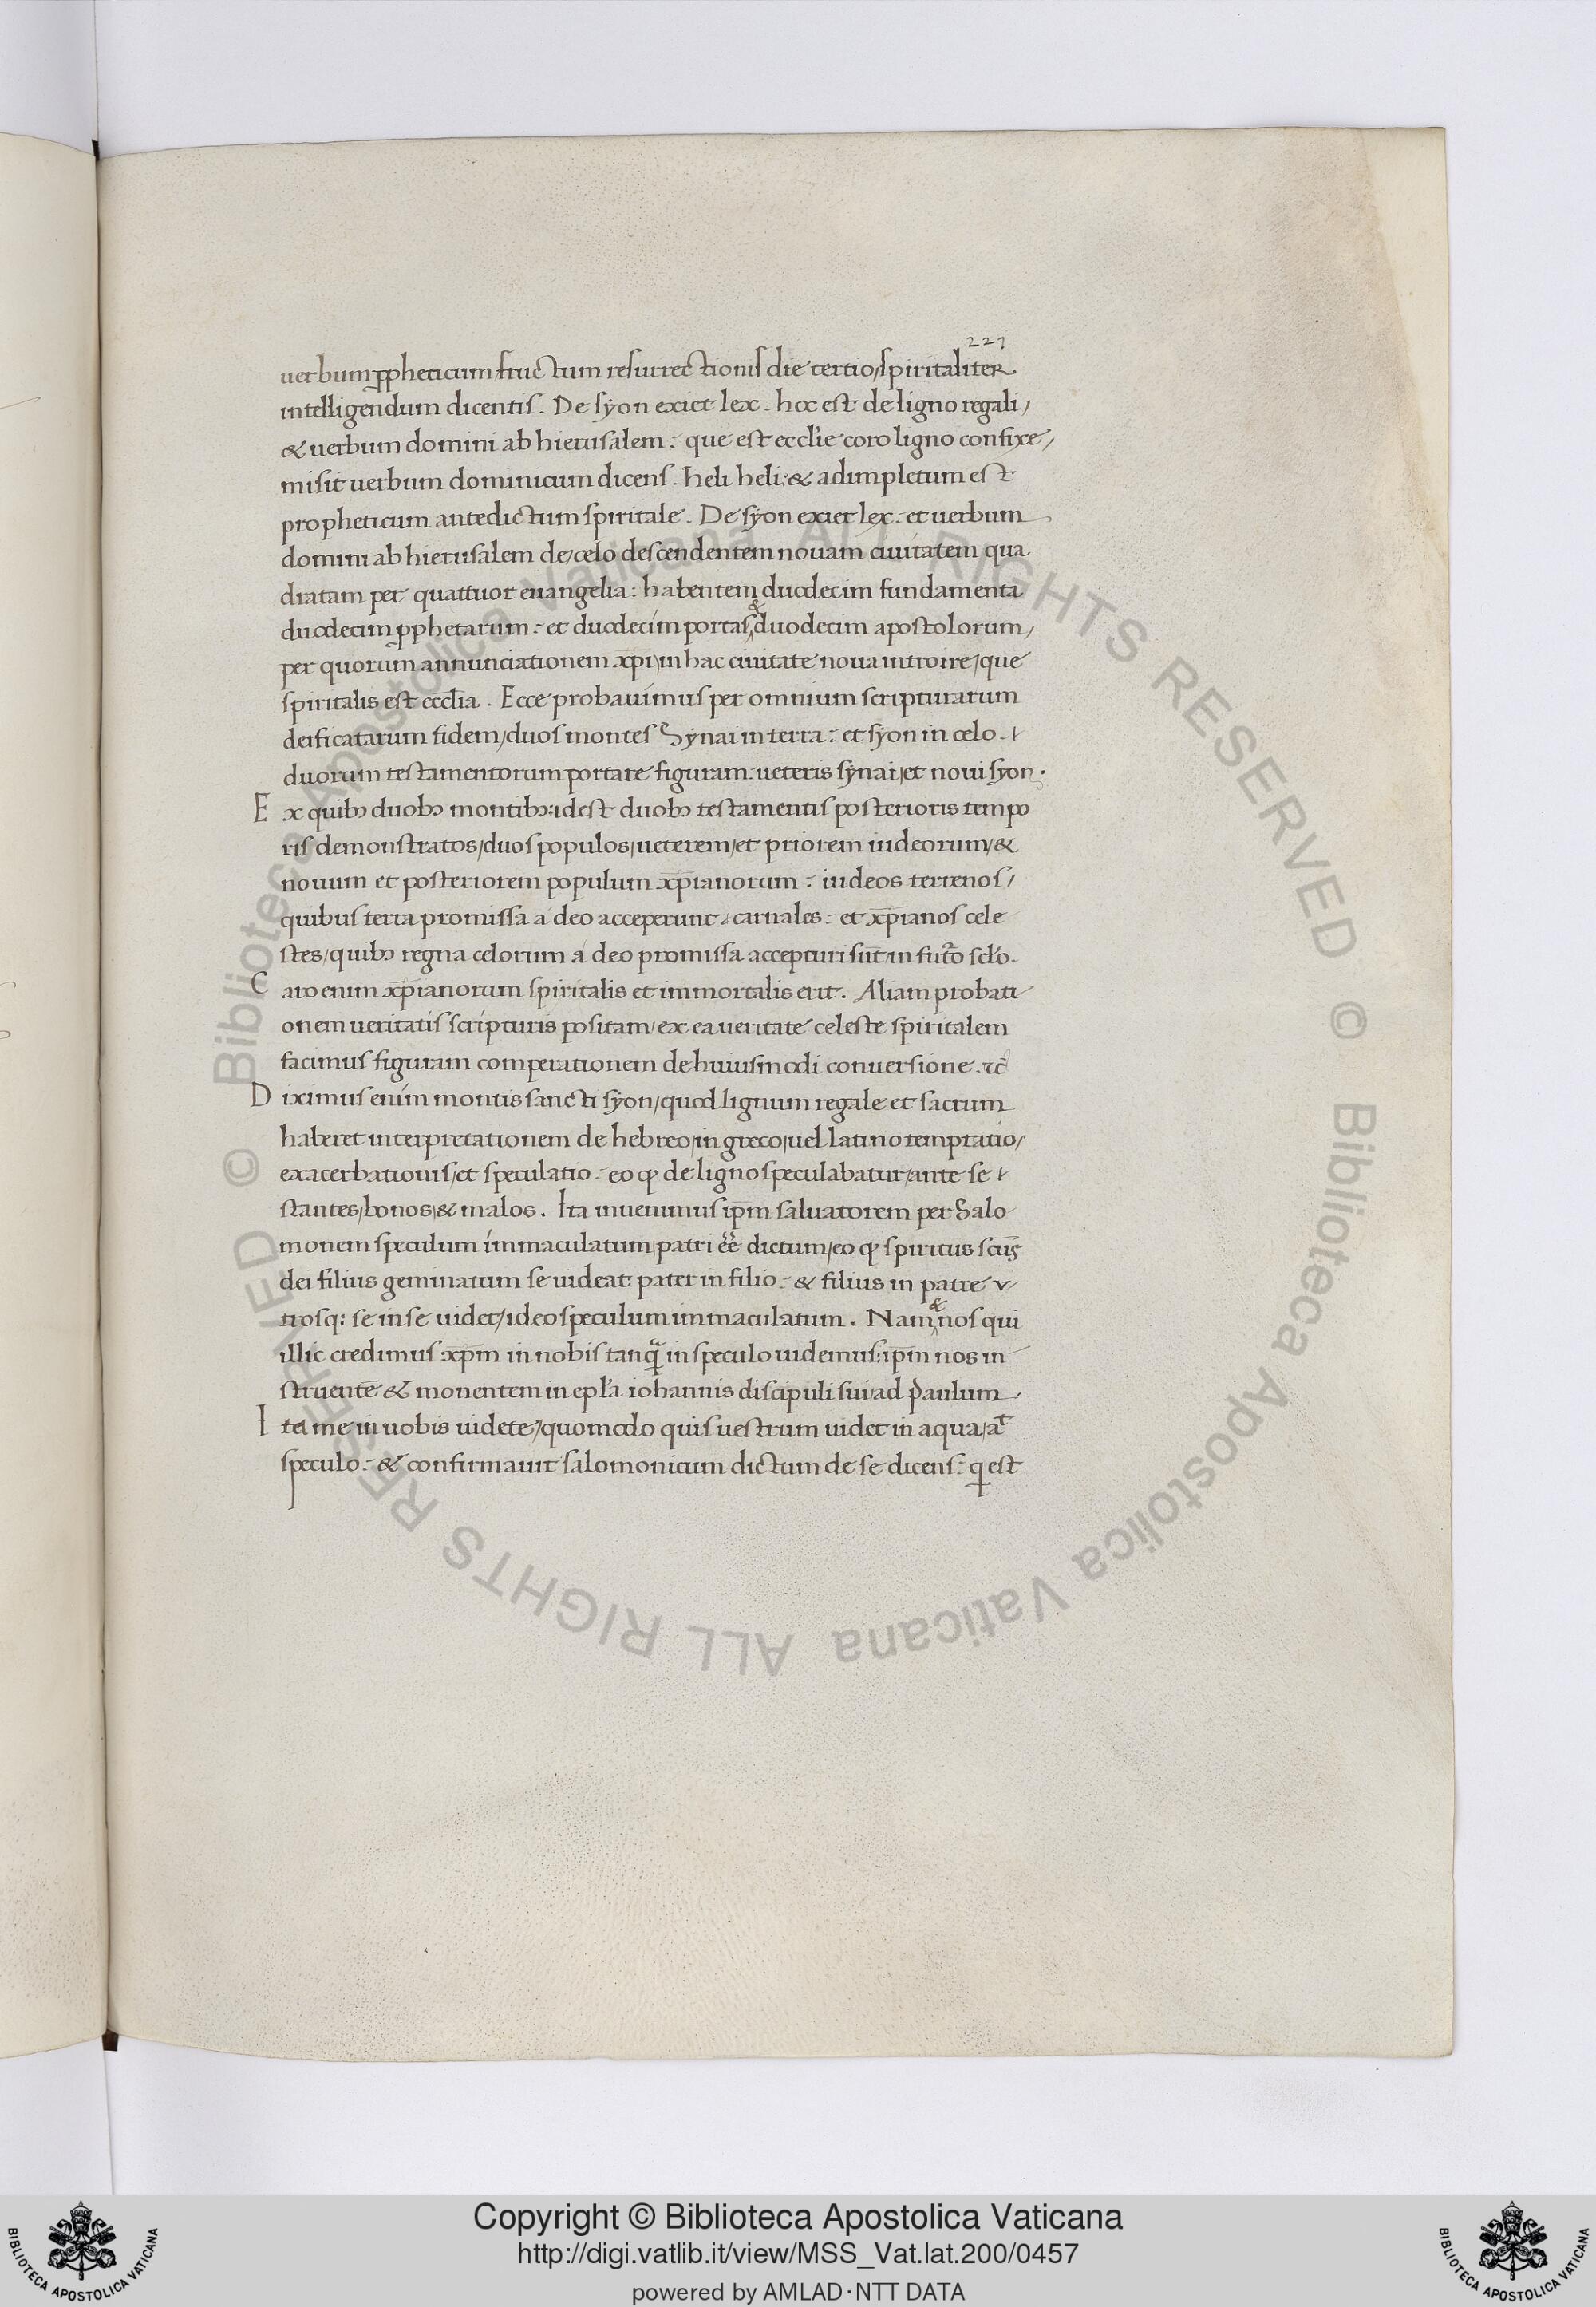 227
uerbum ꝓpheticum fructum resurrectionis die tertio/spiritaliter.
intelligendum dicentis. De syon exiet lex. hoc est de ligno regali/
& uerbum domini ab hierusalem: que est eccl'ie coro ligno confixe/
misit uerbum dominicum dicens. heli heli:& adimpletum est
propheticum antedictum spiritale. De syon exiet lex. et uerbum
domini ab hierusalem de/celo descendentem nouam ciuitatem qua
dratam per quattuor euangelia: habentem duodecim fundamenta
duodecim ꝓphetarum: et duodecim portas & duodecim apostolorum/
per quorum annunciationem xp̄i/in hac ciuitate noua introire/que
spiritalis est eccl̄ia. Ecce probauimus per omnium scripturarum
deificatarum fidem/duos montes Synai in terra: et syon in celo.
duorum testamentorum portare figuram. ueteris synai/et noui syon.
Ex quibꝫ duobꝫ montibꝫ:idest duobꝫ testamentis posterioris tempo
ris demonstratos/duos populos/ueterem/et priorem iudeorum/&
nouum et posteriorem populum xp̄ianorum: iudeos terrenos/
quibus terra promissa a deo acceperunt. carnales: et xp̄ianos cele
stes/quibꝫ regna celorum a deo promissa accepturi sūt in fut᷑o scl'o.
Caro enim xp̄ianorum spiritalis et immortalis erit. Aliam probati
onem ueritatis scripturis positam/ex ea ueritate celeste spiritalem
facimus figuram comperationem de huiusmodi conuersione.
Diximus enim montis sancti syon/quod lignum regale et sacrum
haberet interpretationem de hebreo/in greco/uel latino temptatio/
exacerbationis/et speculatio. eo ꝙ de ligno speculabatur/ante se
stantes/bonos/& malos. Ita inuenimus ip̄m saluatorem per Salo
monem speculum immaculatum/patri ēē dictum/eo ꝙ spiritus scūs
dei filius geminatum se uideat pater in filio: & filius in patre v
trosq: se in se uidet/ideo speculum immaculatum. Nam & nos qui
illic credimus xp̄m in nobis tanꝗ̃ in speculo uidemus:ip̄m nos in
struentē & monentem in epl'a iohannis discipuli sui/ad paulum
Ita me in uobis uidete/quomodo quis uestrum uidet in aqua/aᵗ
speculo: & confirmauit salomonicum dictum de se dicens: ꝗ est
Copyright © Biblioteca Apostolica Vaticana
http://digi.vatlib.it/view/MSS_Vat.lat.200/0457
powered by AMLAD·NTT DATA
BIBLIOTECA APOSTOLICA VATICANA
BIBLIOTECA APOSTOLICA VATICANA
© Biblioteca Apostolica Vaticana ALL RIGHTS RESERVED
© Biblioteca Apostolica Vaticana ALL RIGHTS RESERVED